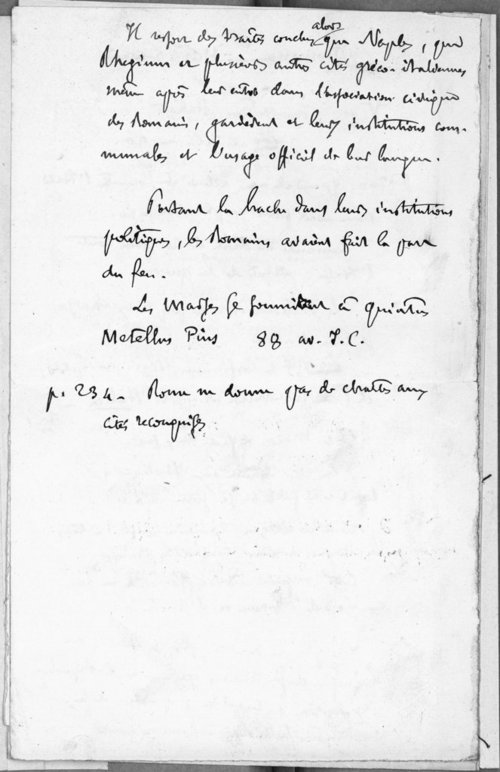 Il ressort des traités conclus alors que Naples, que
Rhegium et plusieurs autres cités gréco-italiennes
même après leur entrée dans l'association civique
des Romains, gardèrent et leurs institutions com-
munales et l'usage officiel de leur langue.
Portant la hache dans leurs institutions
politiques, les Romains avaient fait la part
du feu.
Les Marses se soumirent à Quintus
Metellus Pius 88 av. J.C.
p. 234. Rome ne donne pas de chartes aux
cités reconquises